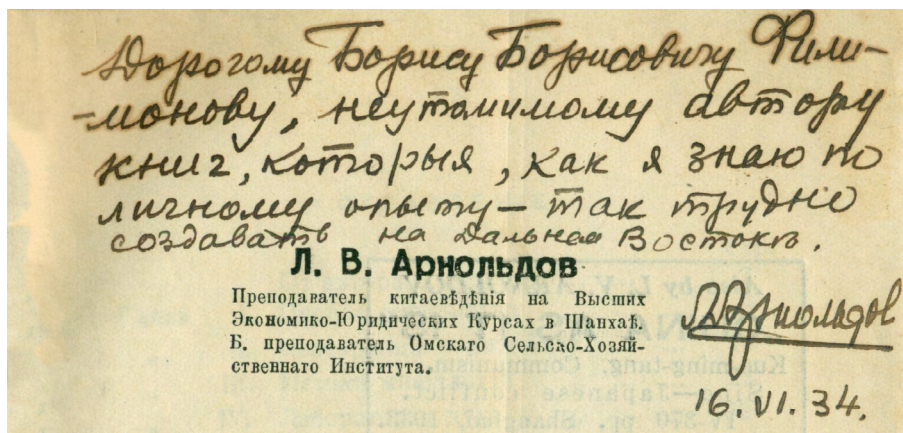 Дорогому Борису Борисовичу Фили-
-монову, неутомимому автору
книг, которыя, как я знаю по
личному опыту – так трудно
создавать на Дальнем Востокѣ.
Л. В. Арнольдов
Преподаватель китаевѣдѣнія на Высших
Экономико-Юридических Курсах в Шанхаѣ.
Б. преподаватель Омскаго Сельско-Хозяй-
ственнаго Института.
ЛАрнольдов
16. VI. 34.